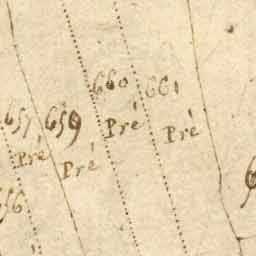 660
661
657
659
Pré
Pré
Pré
Pré
656